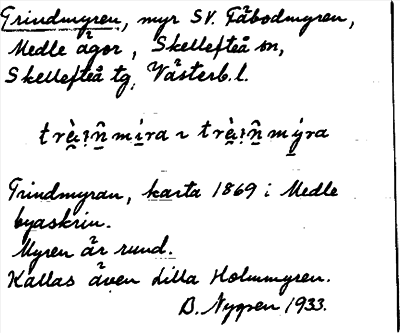 Trindmyren, myr SV. Fäbodmyren,
Medle ägor, Skellefteå sn,
Skellefteå tg, Västerb.l.
Trindmyran, karta 1869 i Medle
byaskrin.
Myren är rund.
Kallas även Lilla Holmmyren.
B. Nygren 1933.